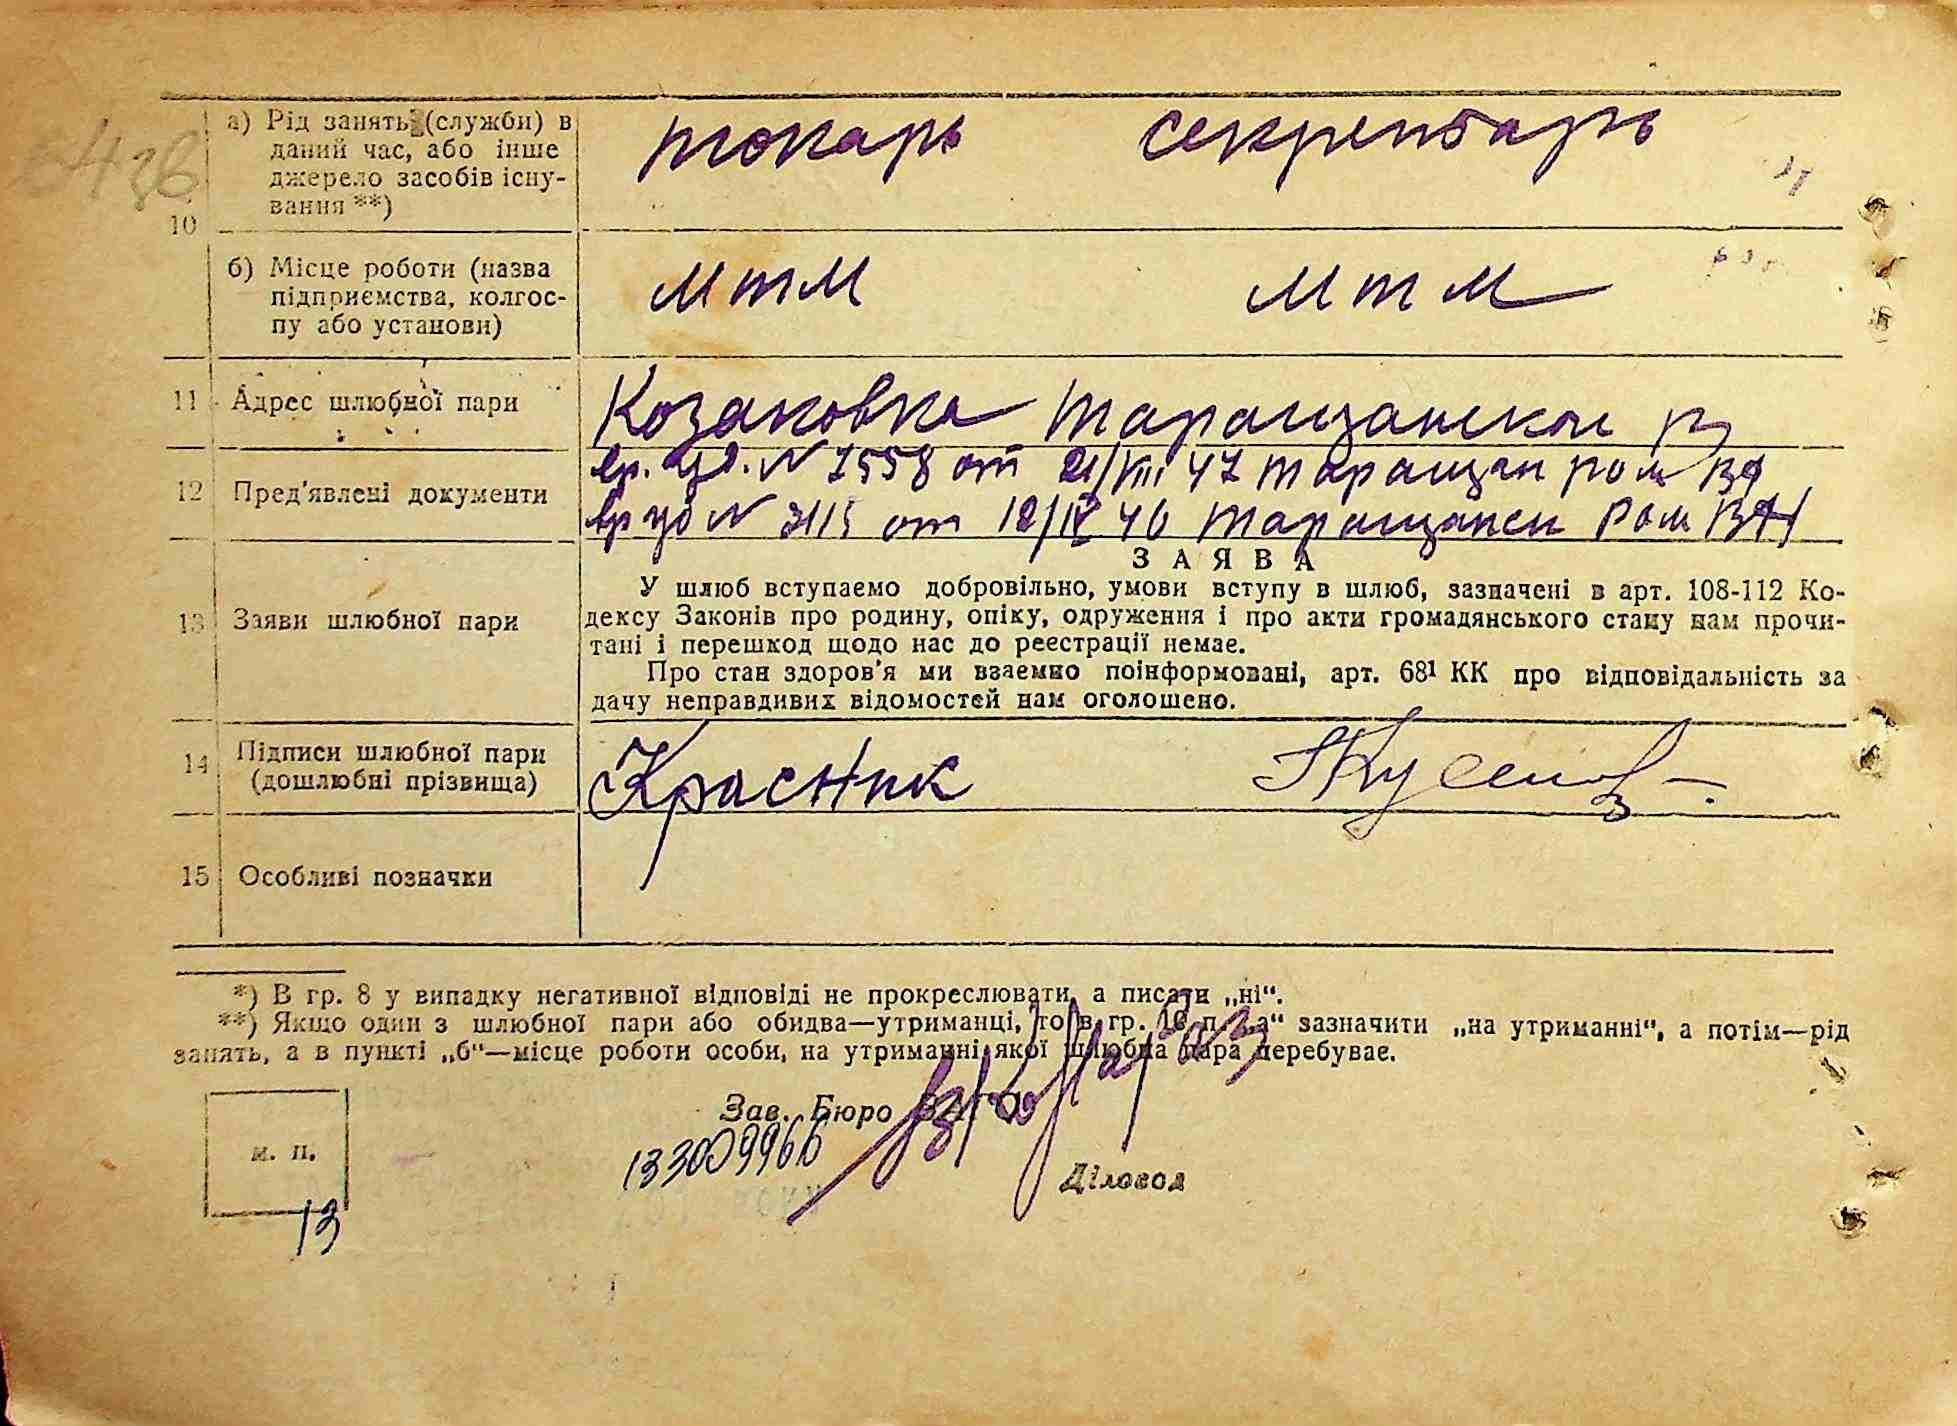 436
10
а) Рід занять (служби) в даний час, або інше джерело засобів існування **)
токарь секретарь
б) Місце роботи (назва підприємства, колгоспу або установи)
МТМ МТМ
11 Адрес шлюбної пари
Козаковка Таращанскои р
12 Пред'явлені документи
вр. уд. N 1558 от 21/VIII 47 Таращан ром
вр уд N 3115 от 12/IV 46 Таращанск Ром
13 Заяви шлюбної пари
ЗАЯВА
У шлюб вступаємо добровільно, умови вступу в шлюб, зазначені в арт. 108-112 Ко-
дексу Законів про родину, опіку, одруження і про акти громадянського стану нам прочи-
тані і перешкод щодо нас до реєстрації немає.
Про стан здоров'я ми взаємно поінформовані, арт. 68¹ КК про відповідальність за
дачу неправдивих відомостей нам оголошено.
14 Підписи шлюбної пари (дошлюбні прізвища)
Красник
15 Особливі позначки
*) В гр. 8 у випадку негативної відповіді не прокреслювати, а писати „ні“.
**) Якщо один з шлюбної пари або обидва—утриманці, то в гр. 10 п. „а“ зазначити „на утриманні“, а потім—рід
занять, а в пункті „б“—місце роботи особи, на утриманні якої шлюбна пара перебуває.
Зав. Бюро
м. п.
Діловод
13